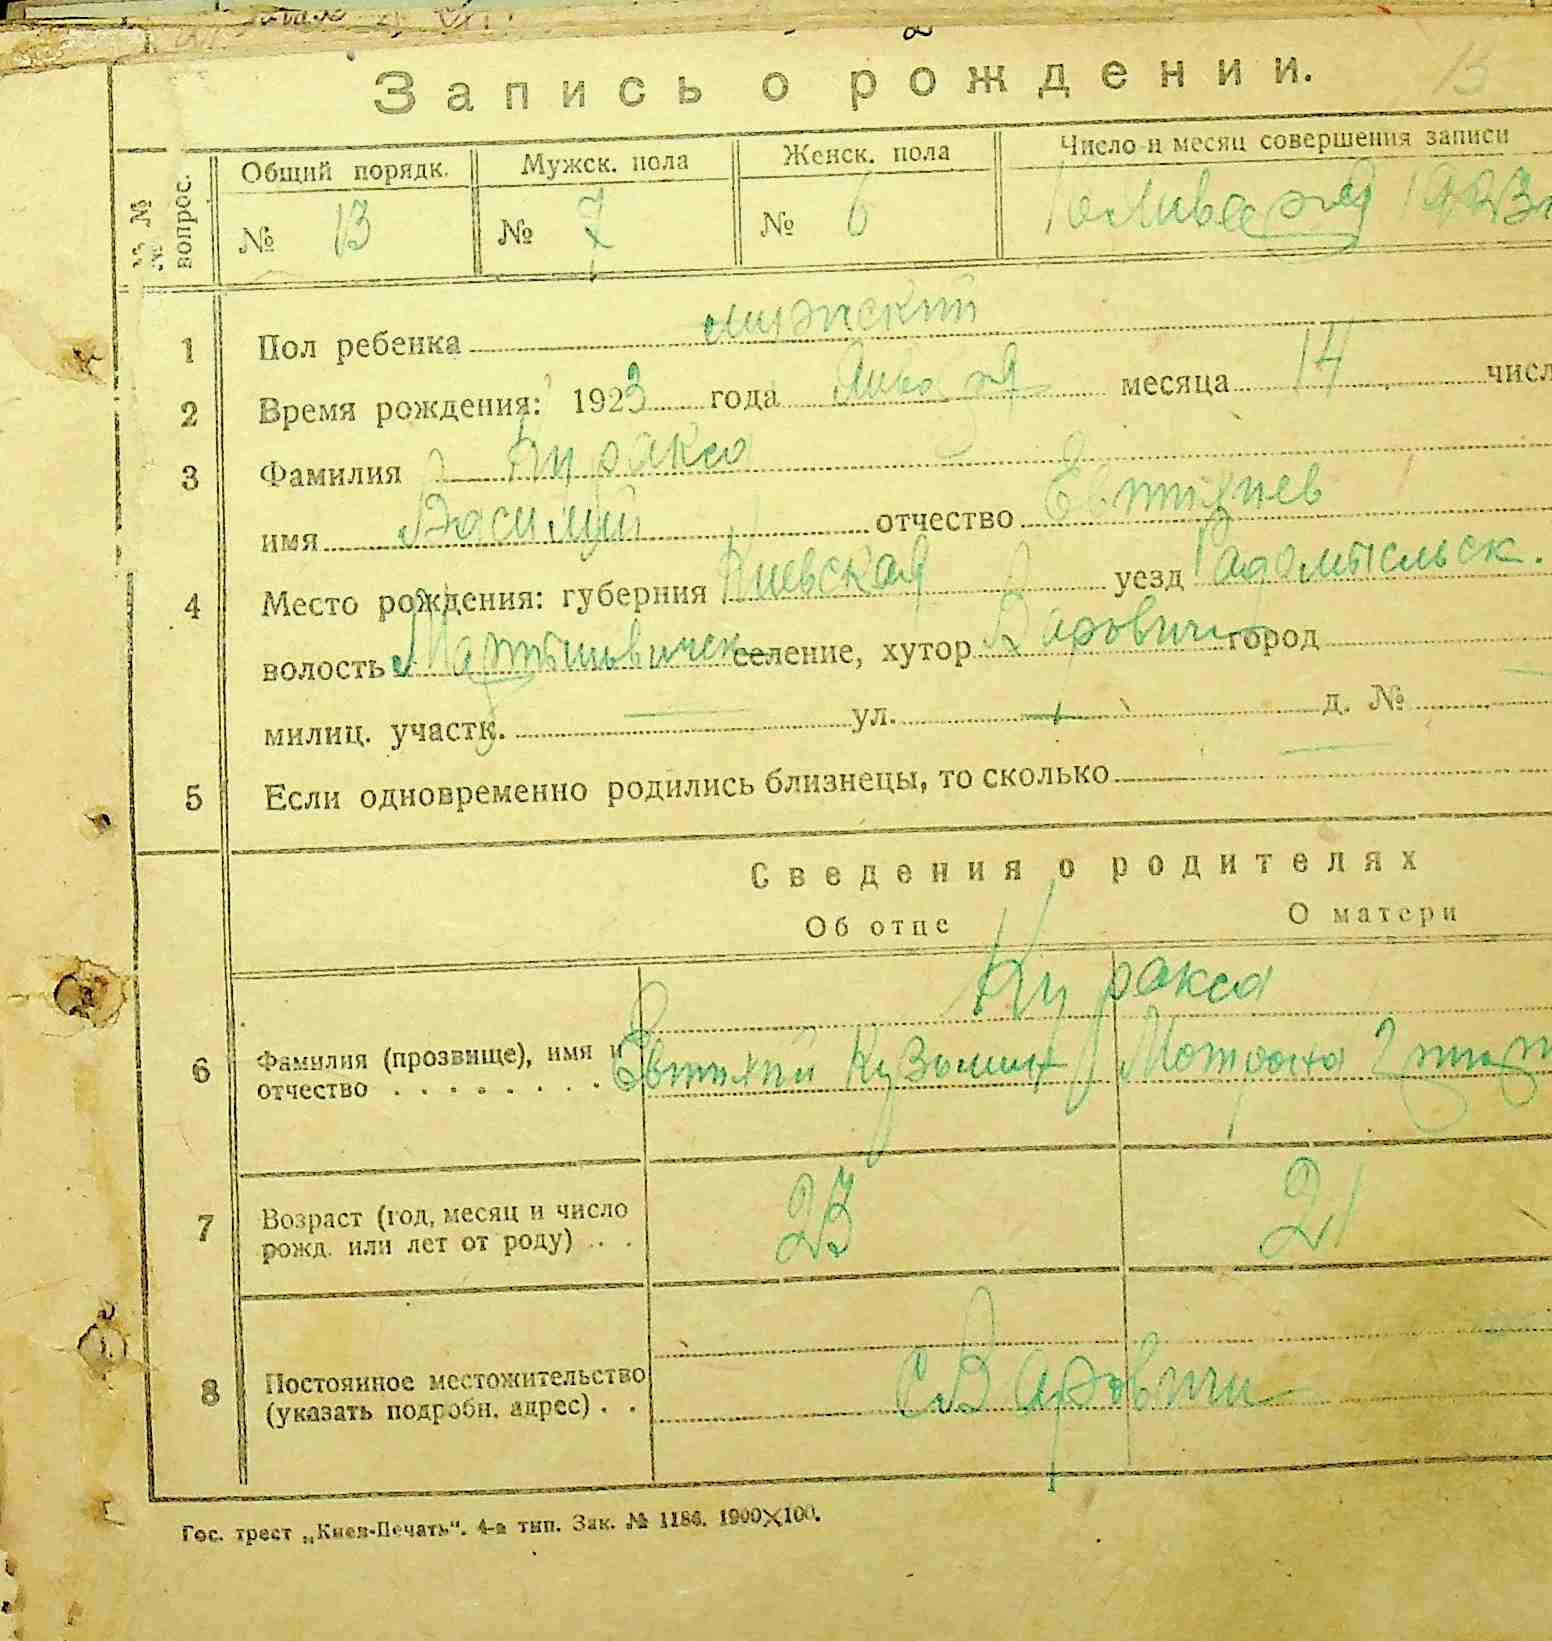 Запись о рождении.
Общий порядк. Мужск. пола Женск. пола Число и месяц совершения записи
№ № вопрос. № 13 № 7 № 6 января 1923
1 Пол ребенка мужский
2 Время рождения: 1923 года Января месяца 14 числ
3 Фамилия Куракса
имя Василий отчество Евтихиев
4 Место рождения: губерния Киевская уезд Радомысльск.
волость Мартыновическ селение, хутор Варовичи город
милиц. участк. — ул. — д. № —
5 Если одновременно родились близнецы, то сколько —
Сведения о родителях
Об отце О матери
Куракса
6 Фамилия (прозвище), имя и
отчество . . . . . . . . Евтихий Кузьмин Мотрона
7 Возраст (год, месяц и число
рожд. или лет от роду) . . . 23 21
8 Постоянное местожительство
(указать подробн. адрес) . . С Варовичи
Гос. трест „Киев-Печать“. 4-а тип. Зак. № 1186. 1900×100.